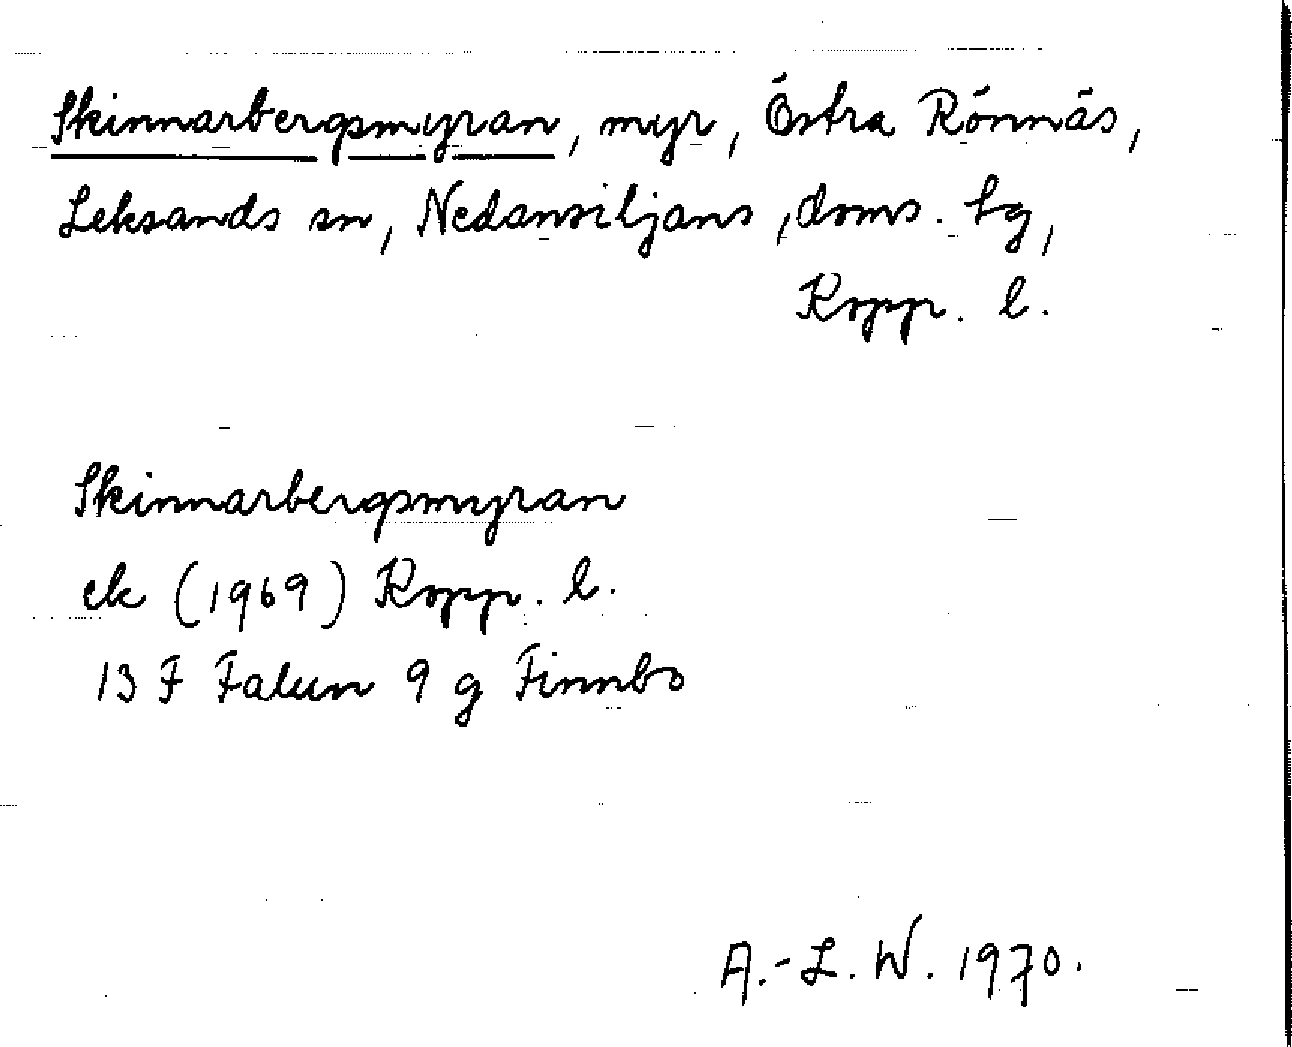 Skinnarbergsmyran, myr, Östra Rönnäs,
Leksands sn, Nedansiljans, doms. tg,
Kopp. l.
Skinnarbergsmyran
ek (1969) Kopp. l.
13 F Falun 9 g Finnbo
A.-L. W. 1970.